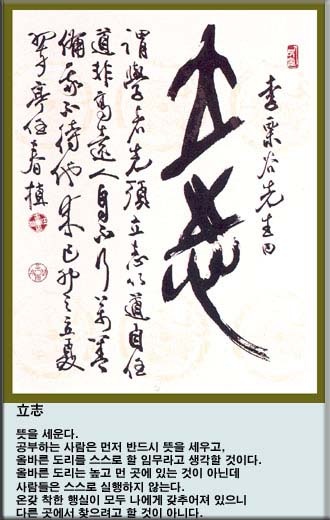 李栗谷先生曰
立志
謂學者先須立志以道自任
道非高遠人自不行萬善
備我不待他求己卯之立夏
翠亭任春植
立志
뜻을 세운다.
공부하는 사람은 먼저 반드시 뜻을 세우고,
올바른 도리를 스스로 할 임무라고 생각할 것이다.
올바른 도리는 높고 먼 곳에 있는 것이 아닌데
사람들은 스스로 실행하지 않는다.
온갖 착한 행실이 모두 나에게 갖추어져 있으니
다른 곳에서 찾으려고 할 것이 아니다.